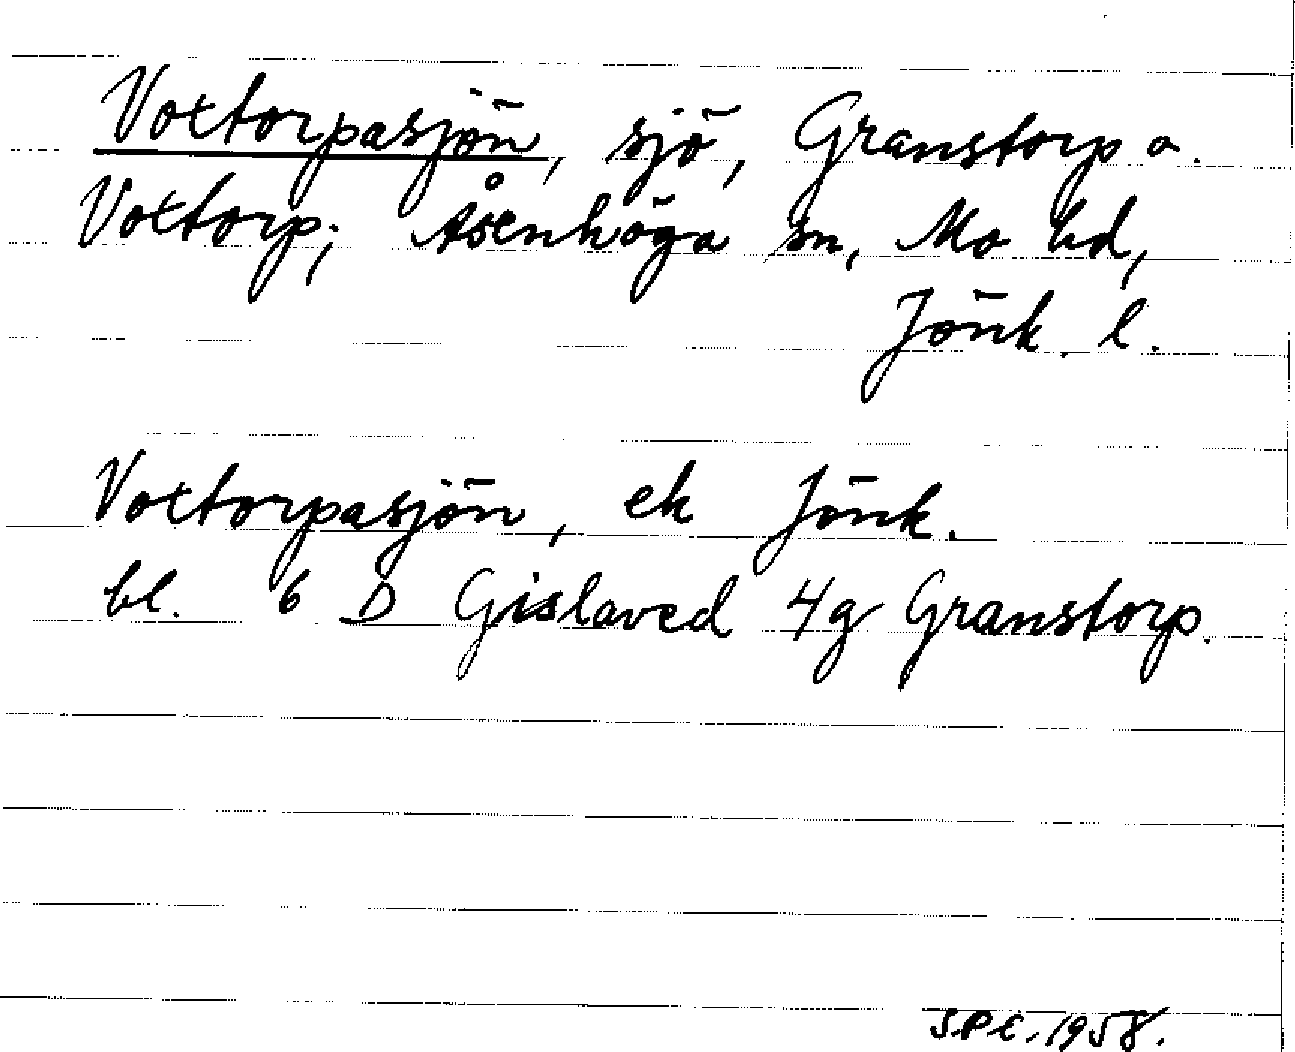 Voxtorpasjön, sjö, Granstorp o.
Voxtorp; Åsenhöga sn, Mo hd,
Jönk. l.
Voxtorpasjön, ek Jönk.
bl. 6 D Gislaved 4g Granstorp.
S.P.E. 1958.